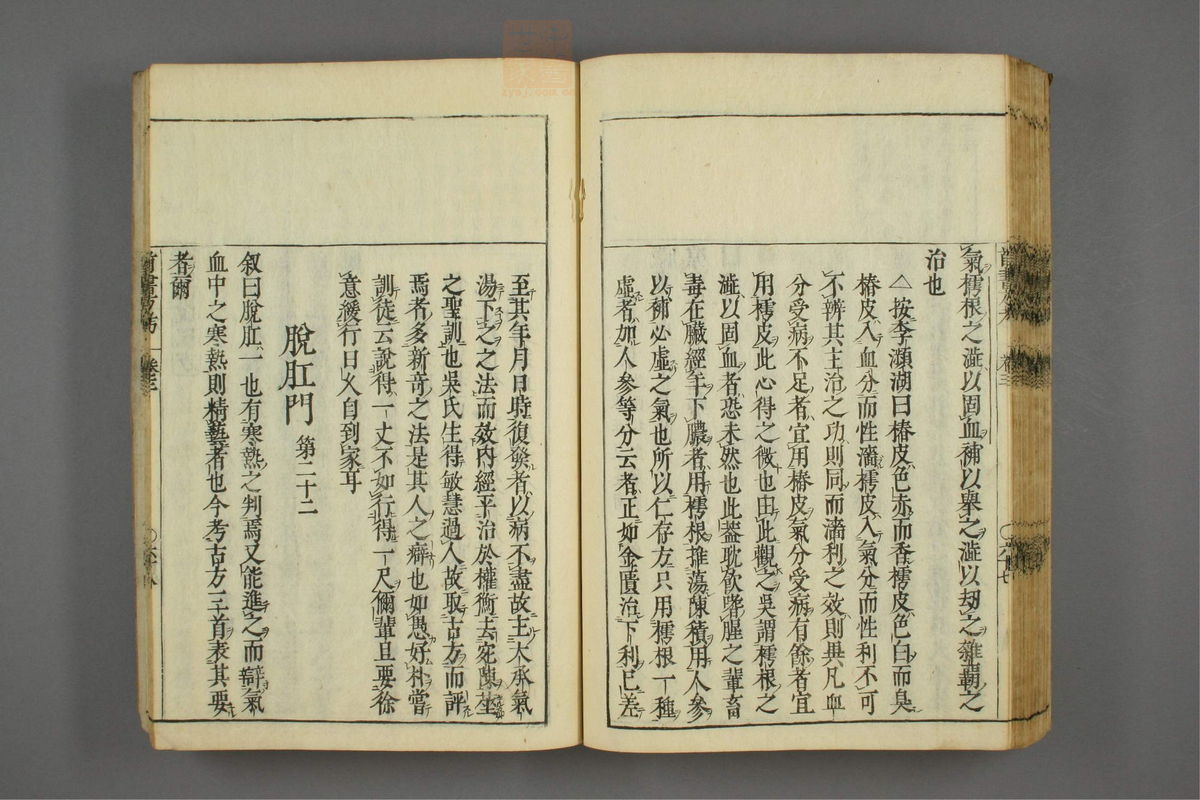 氣樗根之澁以固血補以舉之澁以劫之雖霸之
治也
△按李瀕湖曰椿皮色赤而香樗皮色白而臭
椿皮入血分而性濇樗皮入氣分而性利不可
不辨其主治之功則同而濇利之效則異凡血
分受病不足者宜用椿皮氣分受病有餘者宜
用樗皮此心得之微也由此觀之吳謂樗根之
澁以固血者恐未然也此蓋耽飲嗜腥之輩畜
毒在臟經年下膿者用樗根推蕩陳積用人參
以補必虛之氣也所以仁存方只用樗根一種
虛者加人參等分云者正如金匱治下利已差
至其年月日時復發者以病不盡故主大承氣
湯下之之法而效內經平治於權衡去宛陳莝
之聖訓也吳氏生得敏慧過人故取古方而評
焉者多新奇之法是其人之癖也如愚好村當
訓徒云說得一丈不如行得一尺儞輩且要徐
意緩行日久自到家耳
脫肛門 第二十二
叙曰脫肛一也有寒熱之判焉又能進之而辯氣
血中之寒熱則精藝者也今考古方三首表其要
者爾
卷三